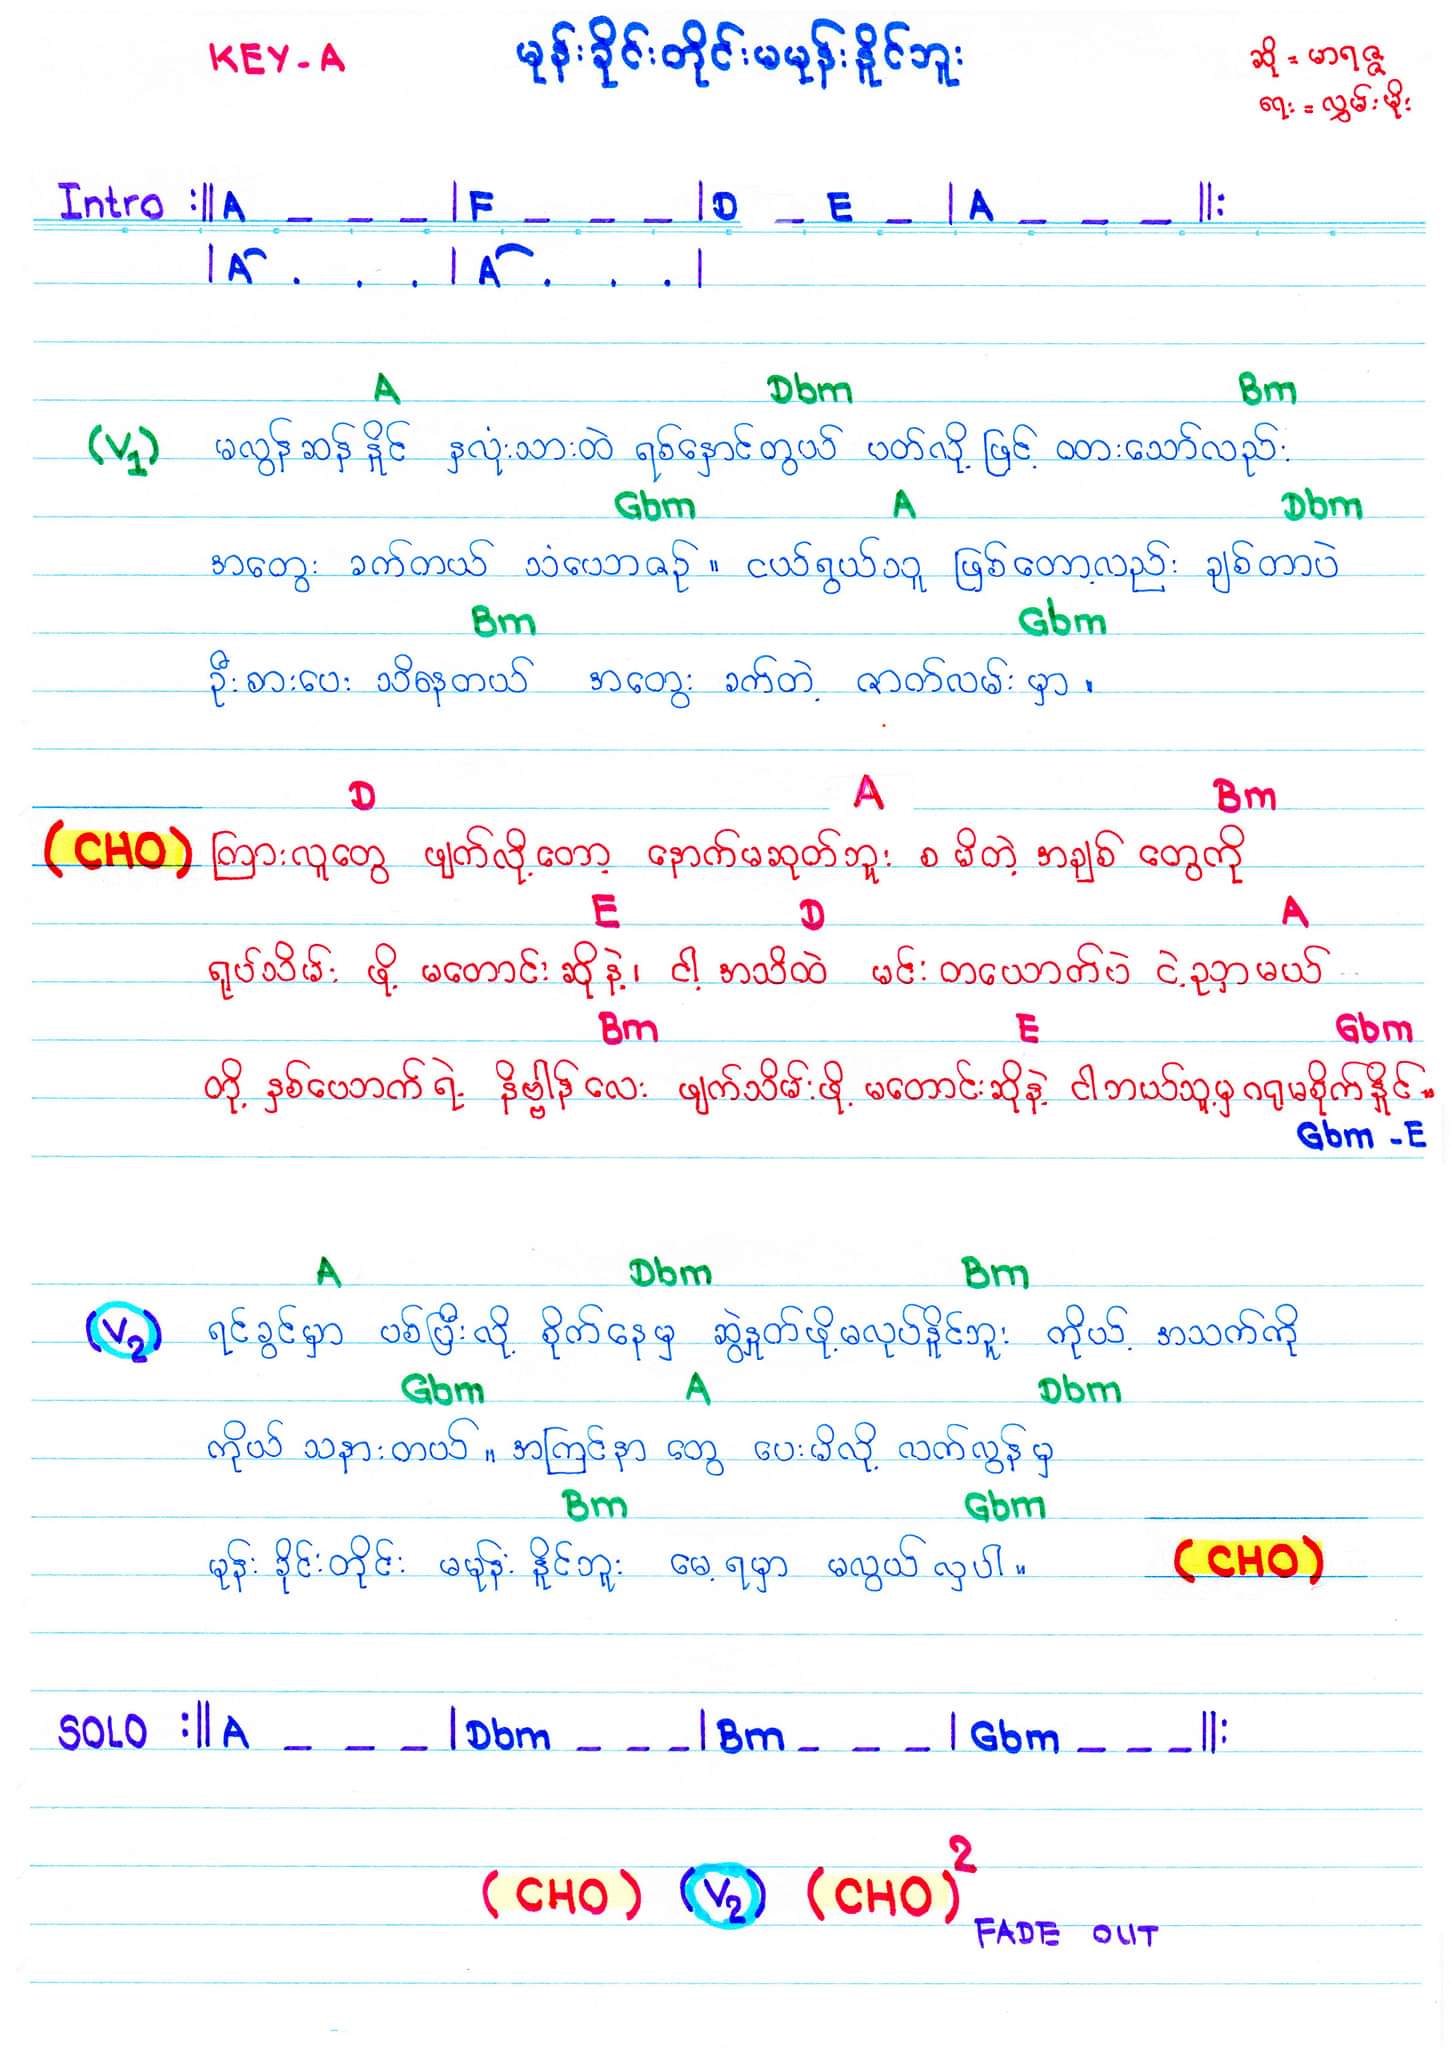 KEY-A မုန်းခိုင်းတိုင်းမမုန်းနိူင်ဘူး ဆို = မာရဇ္ဇ
ရေး = လွှမ်းမိုး
Intro :||A _ _ _ |F _ _ _ |D _ E _ |A _ _ _ ||:
|A . . . |A . . . |
A Dbm Bm
(V1) မလွန်ဆန်နိူင် နှလုံးသားထဲ ရစ်နှောင်တွယ် ပတ်လို့ ဖြင့် ထားသော်လည်း
Gbm A Dbm
အတွေး ခက်တယ် သံယောဇဉ်။ ငယ်ရွယ်သူ ဖြစ်တော့လည်း ချစ်တာပဲ
Bm Gbm
ဦးစားပေး သိနေတယ် အတွေး ခက်တဲ့ ဇာတ်လမ်းမှာ။
D A Bm
(CHO) ကြားလူတွေ ဖျက်လို့တော့ နောက်မဆုတ်ဘူး စမိတဲ့ အချစ် တွေကို
E D A
ရုပ်သိမ်း ဖို့ မတောင်းဆိုနဲ့၊ ငါ့အသိထဲ မင်းတယောက်ပဲ ငဲ့ညှာမယ်
Bm E Gbm
တို့ နှစ်ယောက်ရဲ့ နိဗ္ဗါန်လေး ဖျက်သိမ်းဖို့ မတောင်းဆိုနဲ့ ငါဘယ်သူ့မှဂရုမစိုက်နိူင်။
Gbm - E
A Dbm Bm
(V2) ရင်ခွင်မှာ ပစ်ပြီးလို့ စိုက်နေမှ ဆွဲနှုတ်ဖို့မလုပ်နိူင်ဘူး ကိုယ့် အသက်ကို
Gbm A Dbm
ကိုယ် သနားတယ်။ အကြင်နာ တွေ ပေးမိလို့ လက်လွန်မှ
Bm Gbm
မုန်းခိုင်းတိုင်း မမုန်းနိူင်ဘူး မေ့ရမှာ မလွယ်လှပါ။ (CHO)
SOLO :||A _ _ _ |Dbm _ _ _ |Bm _ _ _ |Gbm _ _ _ ||:
(CHO) (V2) (CHO)2
FADE OUT